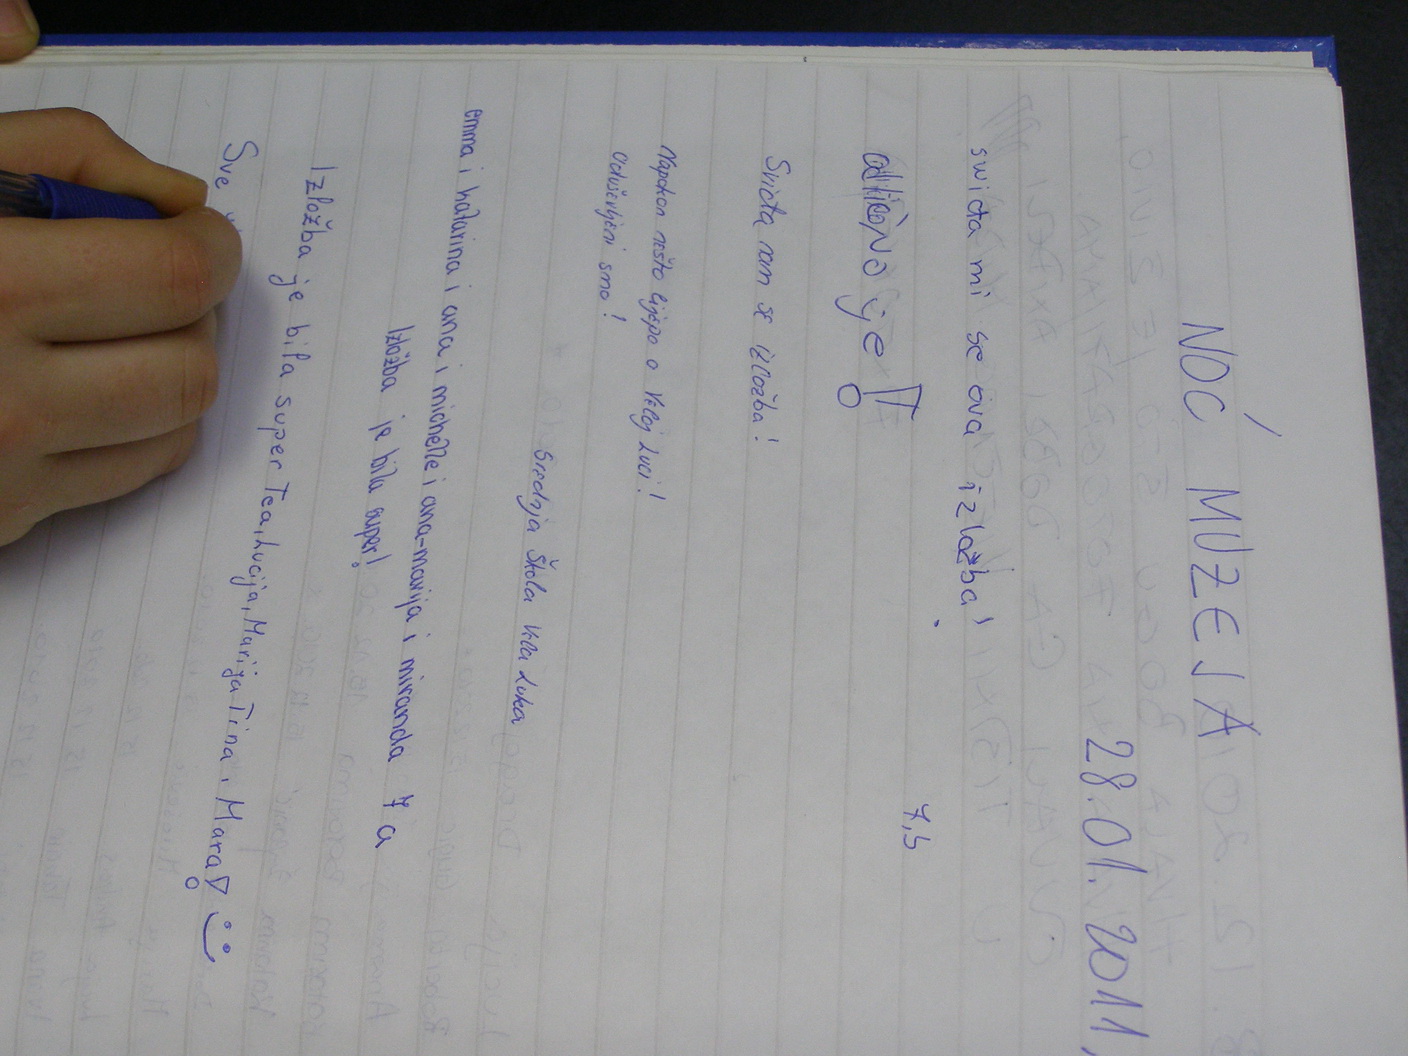 NOĆ MUZEJA
28.01.2011.
swiđa mi se ova izložba!
7,b
odlično je!
Sviđa nam se izložba!
Napokon nešto lijepo o Veloj Luci!
Oduševljeni smo!
Srednja škola Vela Luka
emma i katarina i ana i michelle i ana-marija i miranda 7a
Izložba je bila super!
Izložba je bila super Tea, Lucija, Marija Tina i Mara! :)
Sve